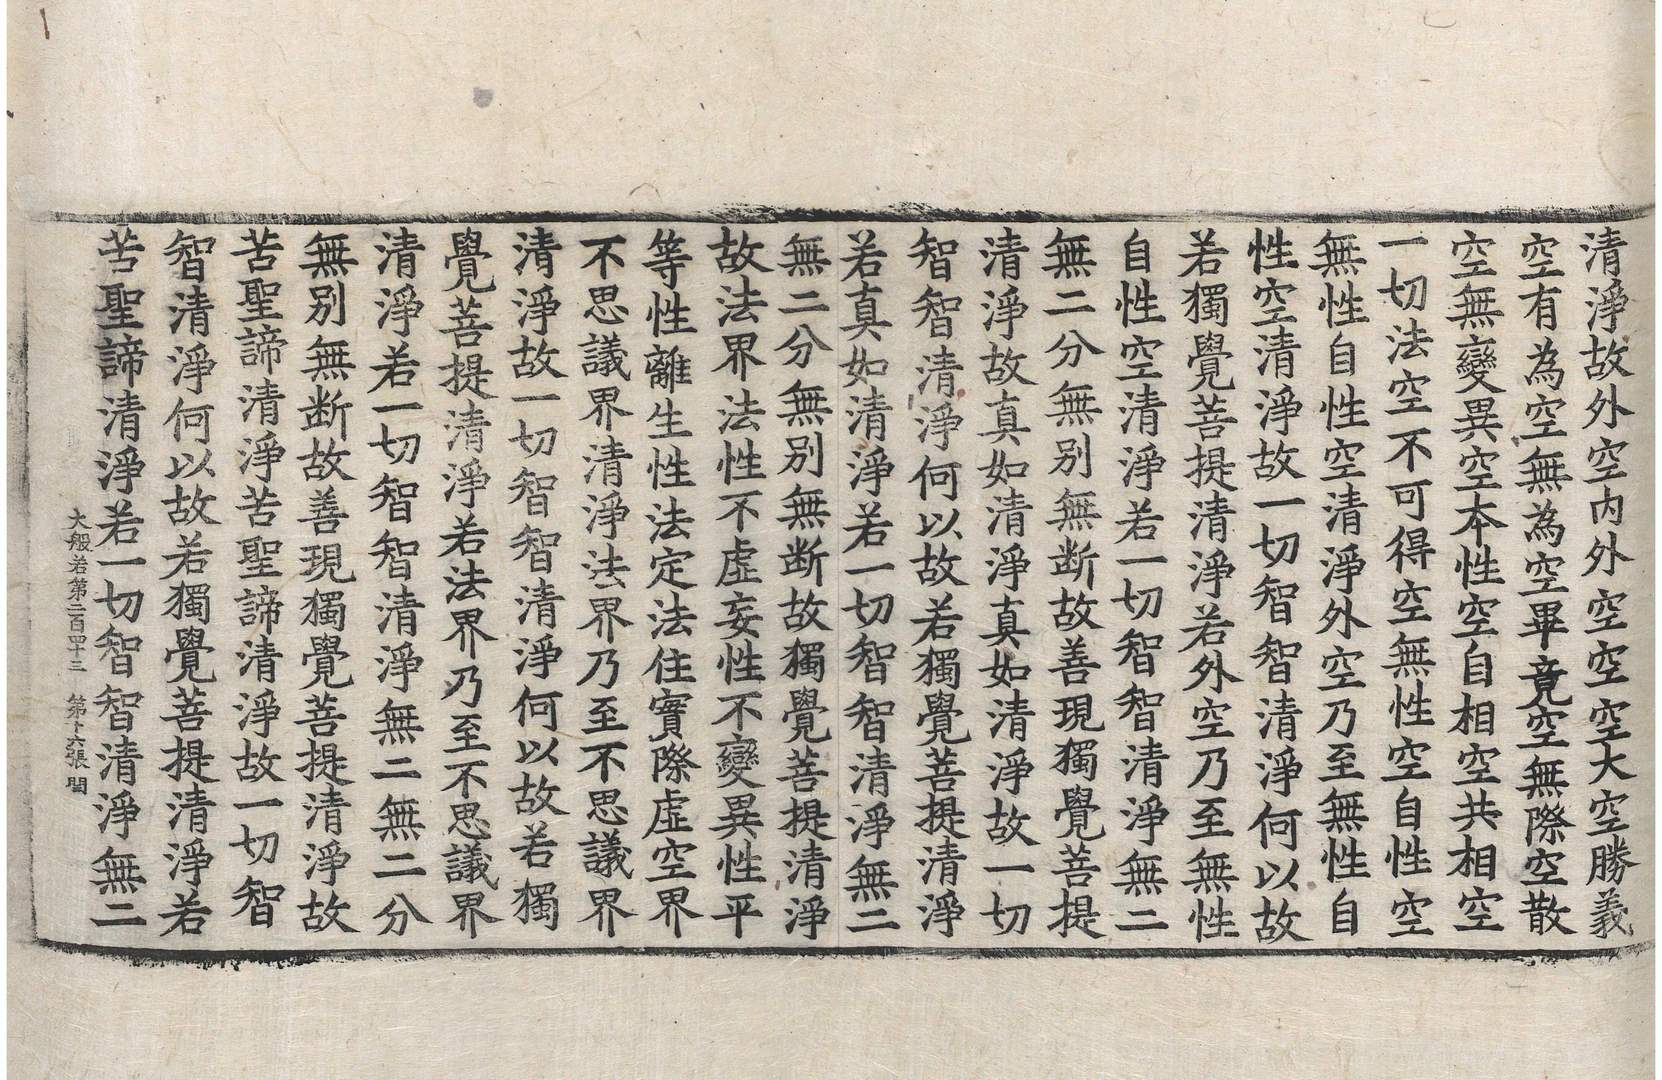 清淨故外空內外空空空大空勝義
空有為空無為空畢竟空無際空散
空無變異空本性空自相空共相空
一切法空不可得空無性空自性空
無性自性空清淨外空乃至無性自
性空清淨故一切智智清淨何以故
若獨覺菩提清淨若外空乃至無性
自性空清淨若一切智智清淨無二
無二分無別無斷故善現獨覺菩提
清淨故真如清淨真如清淨故一切
智智清淨何以故若獨覺菩提清淨
若真如清淨若一切智智清淨無二
無二分無別無斷故獨覺菩提清淨
故法界法性不虛妄性不變異性平
等性離生性法定法住實際虛空界
不思議界清淨法界乃至不思議界
清淨故一切智智清淨何以故若獨
覺菩提清淨若法界乃至不思議界
清淨若一切智智清淨無二無二分
無別無斷故善現獨覺菩提清淨故
苦聖諦清淨苦聖諦清淨故一切智
智清淨何以故若獨覺菩提清淨若
苦聖諦清淨若一切智智清淨無二
大般若第二百四十三　第十六張　閏